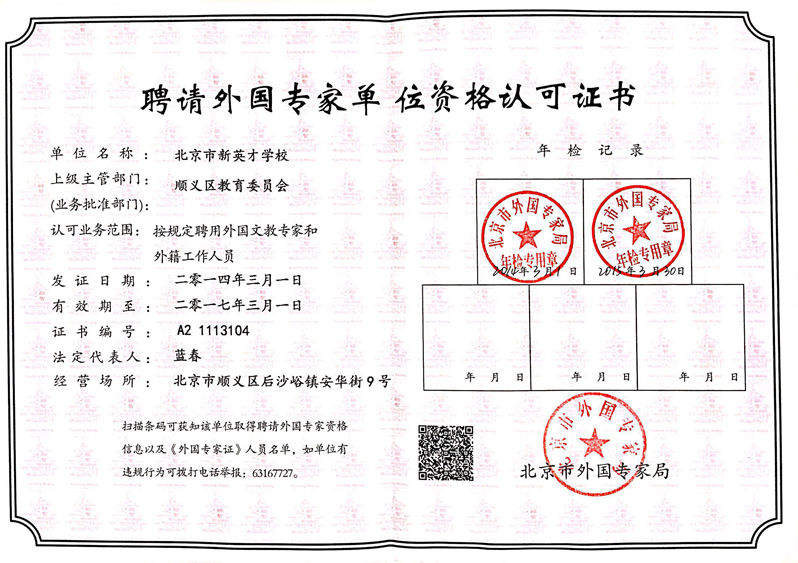 聘请外国专家单位资格认可证书
单位名称: 北京市新英才学校
上级主管部门: 顺义区教育委员会
(业务批准部门):
认可业务范围: 按规定聘用外国文教专家和
外籍工作人员
发证日期: 二零一四年三月一日
有效期至: 二零一七年三月一日
证书编号: A2 1113104
法定代表人: 蓝春
经营场所: 北京市顺义区后沙峪镇安华街9号
扫描条码可获知该单位取得聘请外国专家资格
信息以及《外国专家证》人员名单，如单位有
违规行为可拨打电话举报：63167727。
年检记录
北京市外国专家局
年检专用章
2014年3月1日
北京市外国专家局
年检专用章
2015年3月30日
年 月 日
年 月 日
年 月 日
北京市外国专家局
北京市外国专家局